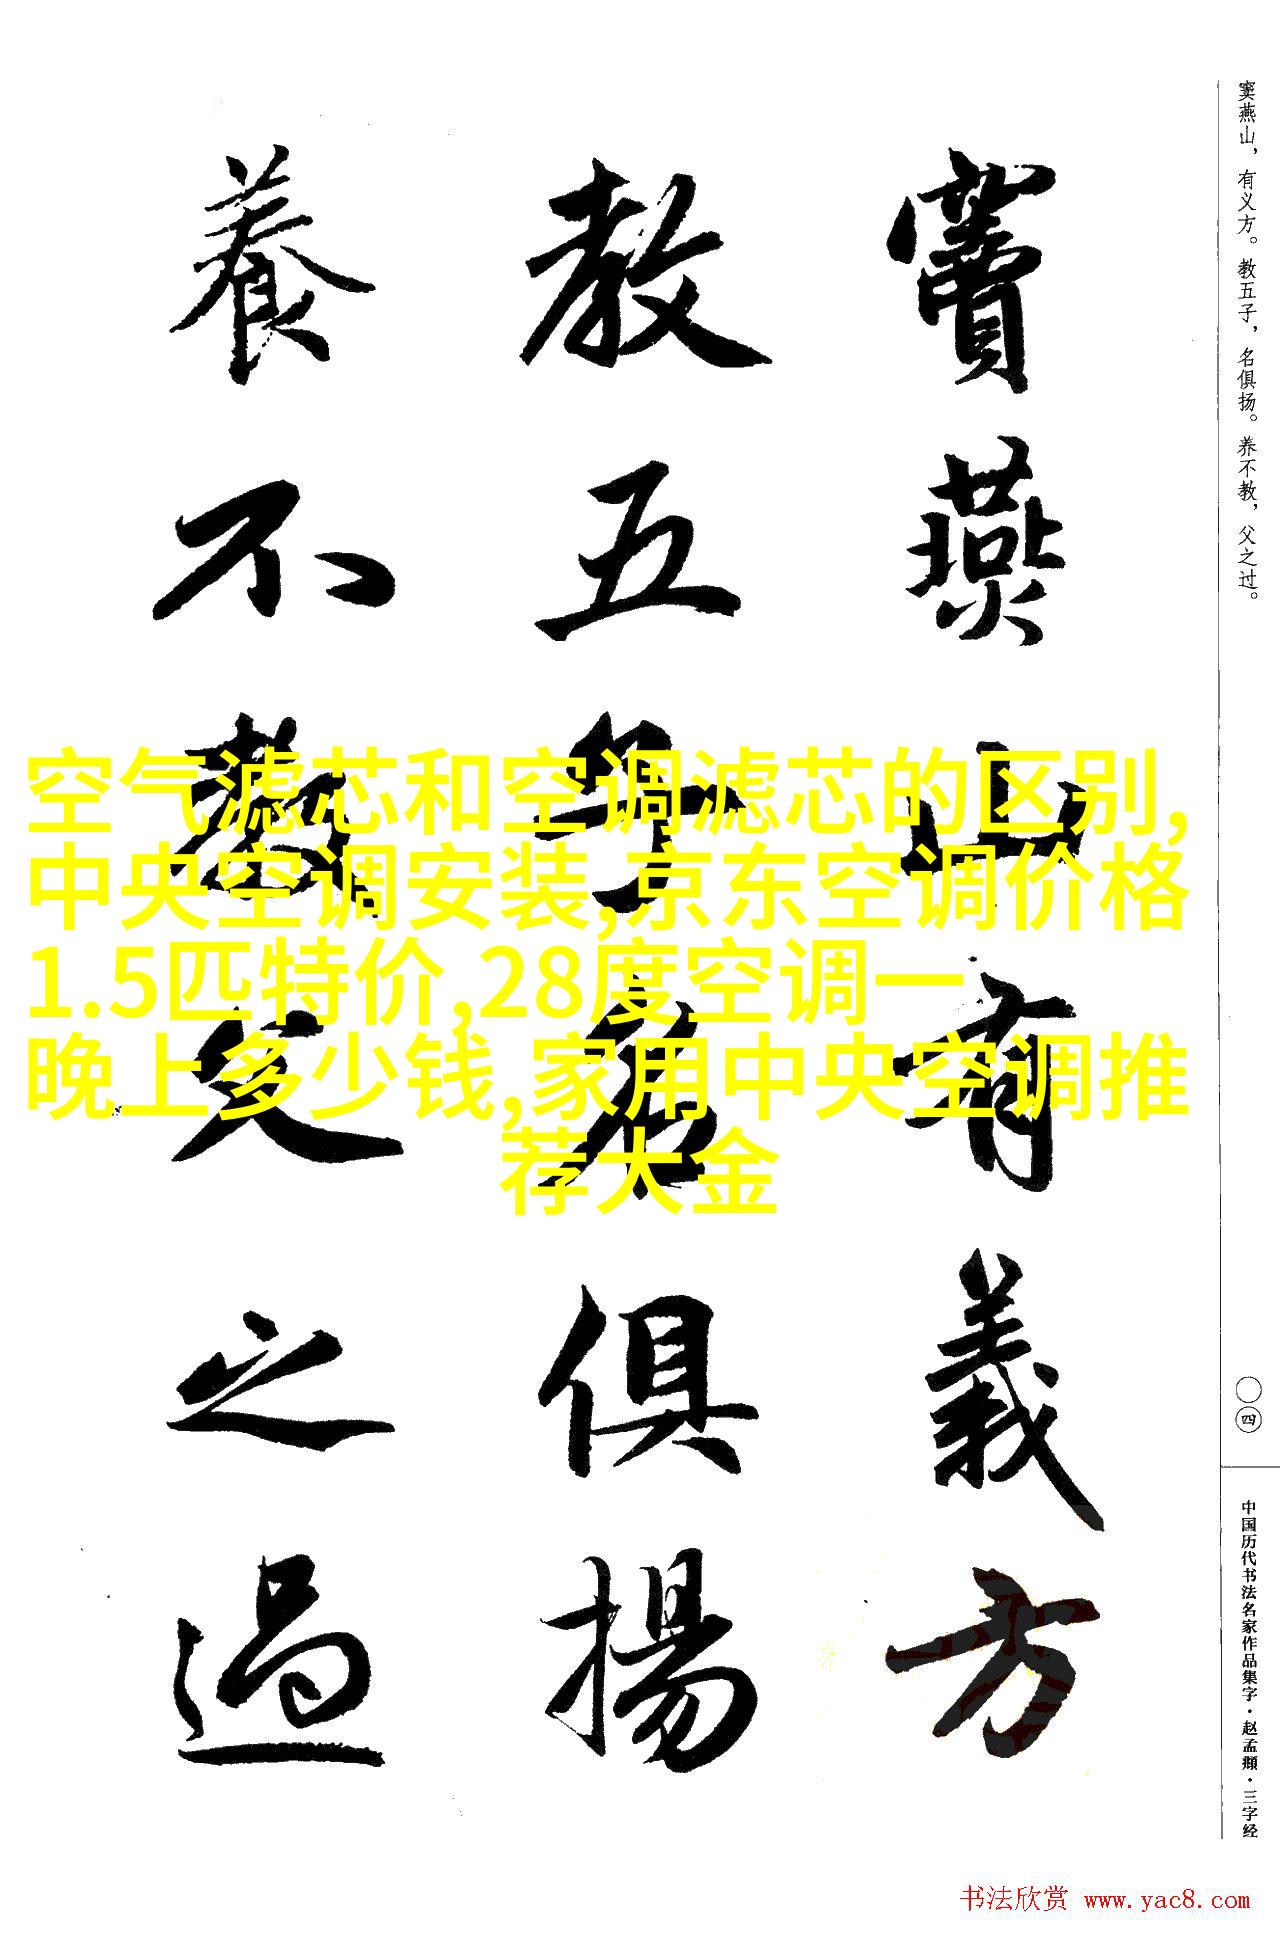 窦燕山，有义方。教五子，名俱扬。养不教，父之过。
竇燕山有義方
教五子名俱揚
養不教父之過
空气滤芯和空调滤芯的区别,
中央空调安装,京东空调价格
1.5匹特价,28度空调一
晚上多少钱,家用中央空调推
荐大金
〇四
中国历代书法名家作品集字·赵孟頫·三字经
书法欣赏 www.yac8.com